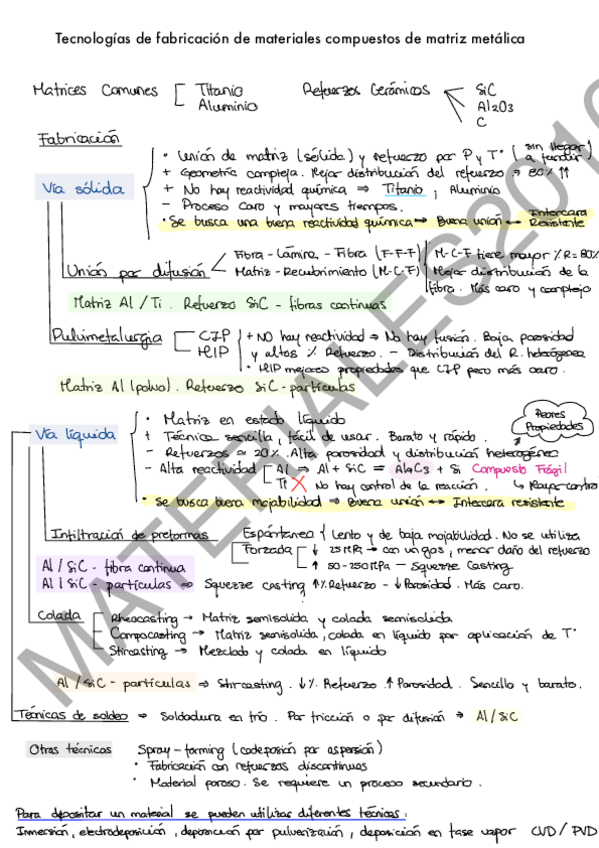 Tecnologías de fabricación de materiales compuestos de matriz metálica
Matrices Comunes Titanio Aluminio Refuerzos Cerámicos SiC Al2O3 C
Fabricación
Vía sólida
• Unión de matriz (sólida) y refuerzo por P y Tª (sin llegar a fundir)
+ Geometría compleja. Mejor distribución del refuerzo → 80% ↑↑
+ No hay reactividad química ⇒ Titanio, Aluminio
- Proceso caro y mayores tiempos.
• Se busca una buena reactividad química → Buena unión ↔ Intercara Resistente
Unión por difusión
Fibra - Lámina - Fibra (F-F-F)
Matriz - Recubrimiento (M-C-F)
M-C-F tiene mayor %R = 80%
Mejor distribución de la
fibra. Más caro y complejo
Matriz Al / Ti. Refuerzo SiC - fibras continuas
Pulvimetalurgia
CIP
HIP
+ No hay reactividad ⇒ No hay fusión. Baja porosidad
y altos % Refuerzo. - Distribución del R. heterogénea
• HIP mejores propiedades que CIP pero más caro.
Matriz Al (polvo). Refuerzo SiC - partículas
Vía líquida
• Matriz en estado líquido
+ Técnica sencilla, fácil de usar. Barato y rápido.
- Refuerzos ≃ 20%. Alta porosidad y distribución heterogénea
Peores Propiedades
- Alta reactividad Al ⇒ Al + SiC = Al4C3 + Si Compuesto Frágil
Ti X No hay control de la reacción.
• Se busca buena mojabilidad ⇒ Buena unión ↔ Intercara resistente
Infiltración de preformas
Espontánea { Lento y de baja mojabilidad. No se utiliza
Forzada ↓ 25 MPa → con un gas, menor daño del refuerzo
↑ 50-250 MPa - Squezze Casting
Al / SiC - fibra continua
Al / SiC - partículas ⇒ Squezze casting ↑% Refuerzo - ↓ Porosidad. Más caro.
Colada
Rheocasting → Matriz semisólida y colada semisólida
Compocasting → Matriz semisólida, colada en líquido por aplicación de Tª
Stircasting → Mezclado y colada en líquido
Al / SiC - partículas ⇒ Stircasting. ↓% Refuerzo ↑ Porosidad. Sencillo y barato.
Técnicas de soldeo ⇒ Soldadura en frío. Por fricción o por difusión → Al / SiC
Otras técnicas Spray-forming (codeposición por aspersión)
• Fabricación con refuerzos discontinuos
• Material poroso. Se requiere un proceso secundario.
Para depositar un material se pueden utilizar diferentes técnicas:
Inmersión, electrodeposición, deposición por pulverización, deposición en fase vapor CVD / PVD